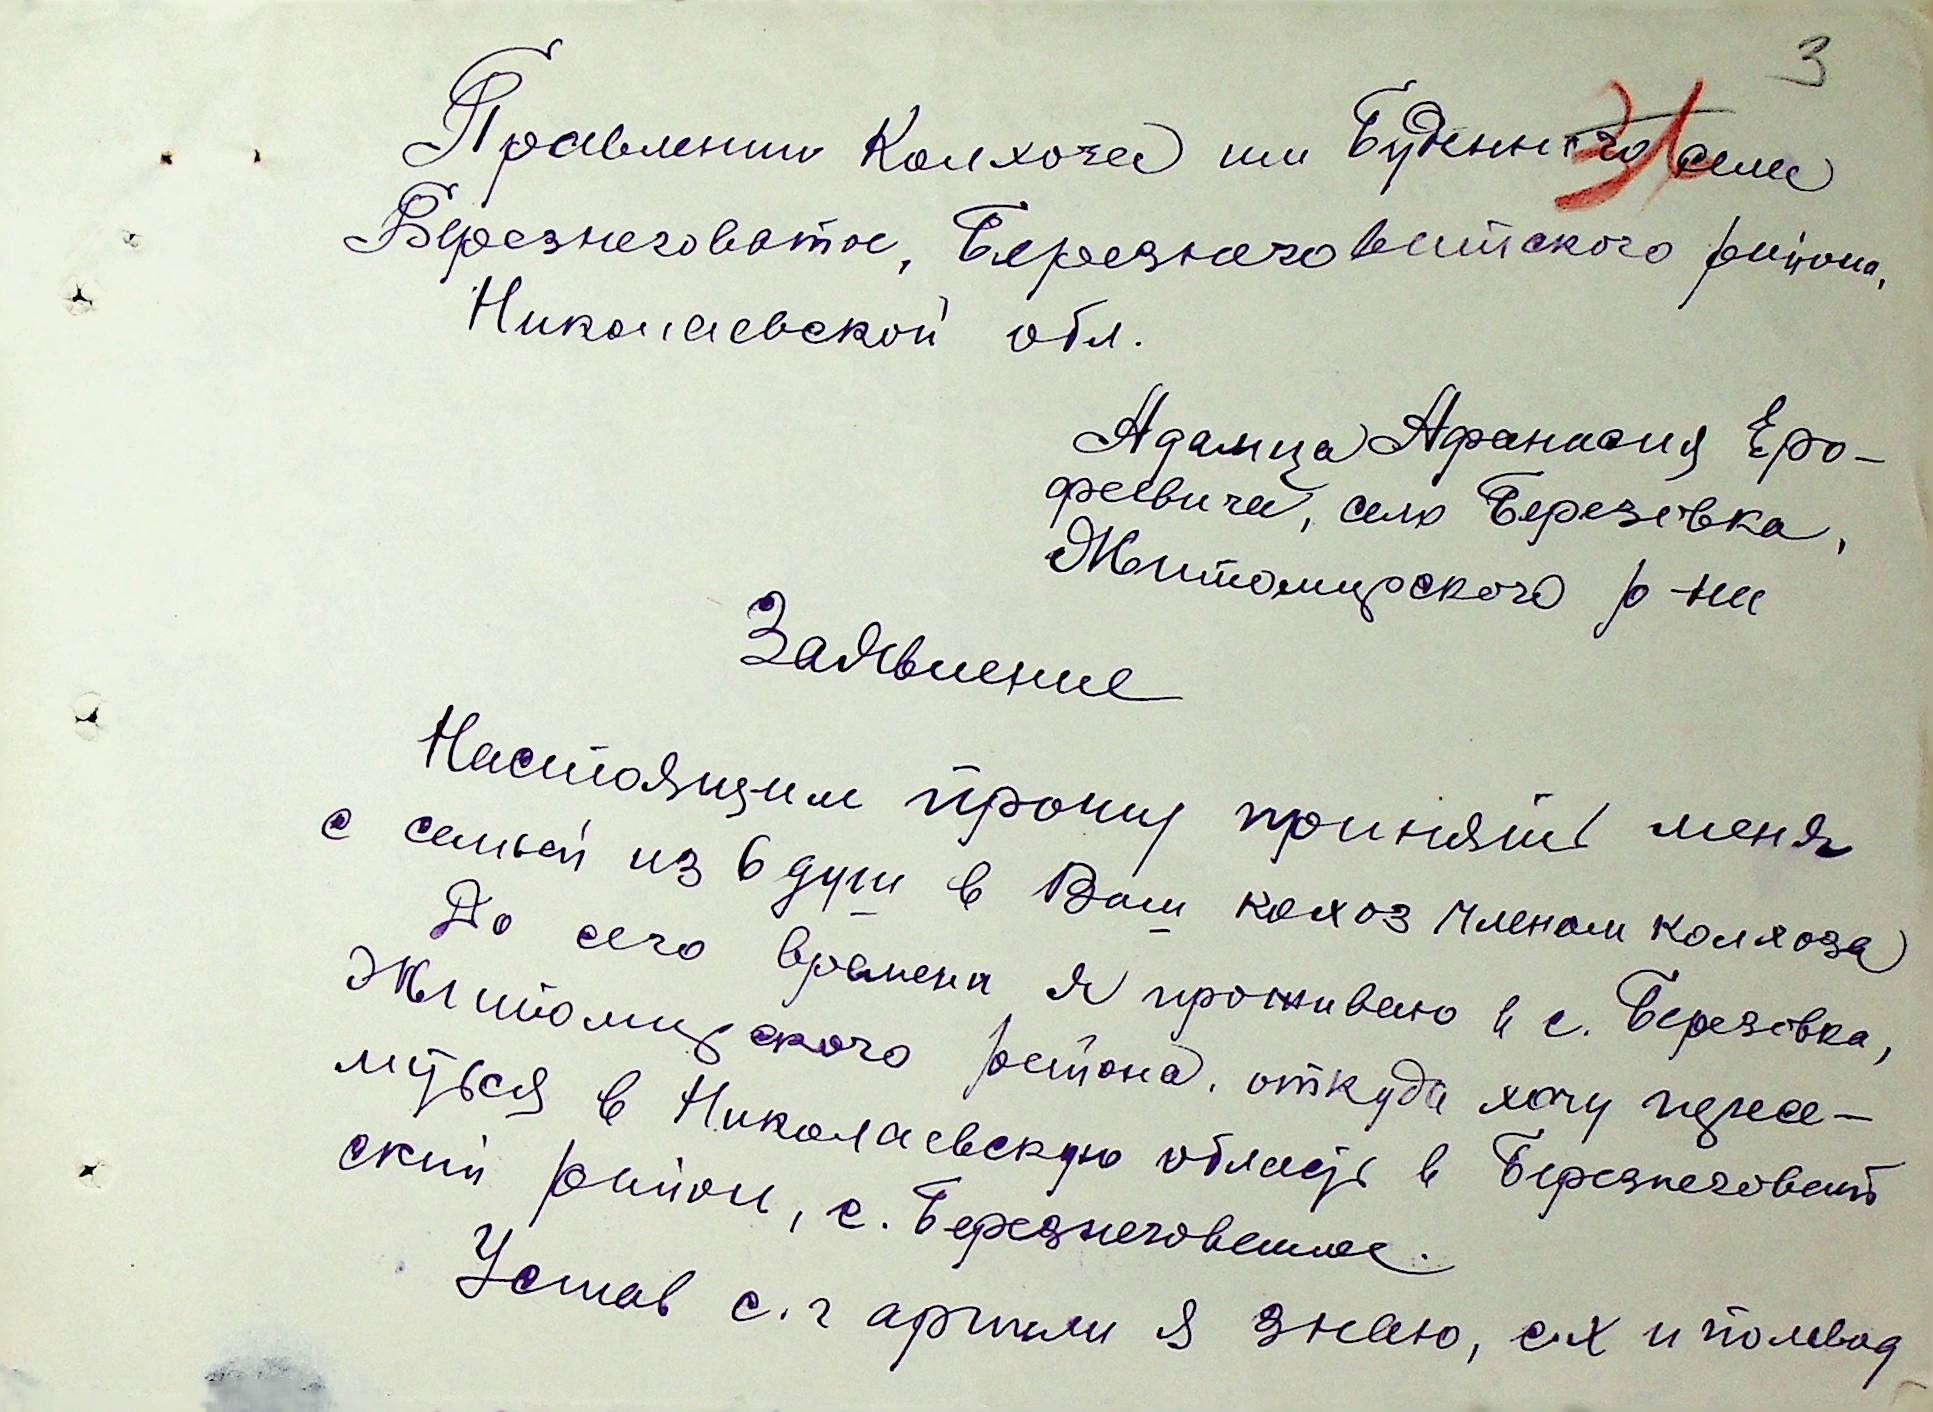 3
31
Правлению Колхоза им Буденного села
Березнеговатое, Березнеговатского района,
Николаевской обл.
Адамца Афанасия Еро-
феевича, село Березовка,
Житомирского р-на
Заявление
Настоящим прошу принять меня
с семьей из 6 душ в Ваш колхоз членом колхоза
До сего времени я проживаю в с. Березовка,
Житомирского района, откуда хочу пересе-
литься в Николаевскую область в Березнеговат
ский район, с. Березнеговатое.
Устав с.х артели я знаю, с.х и полевод